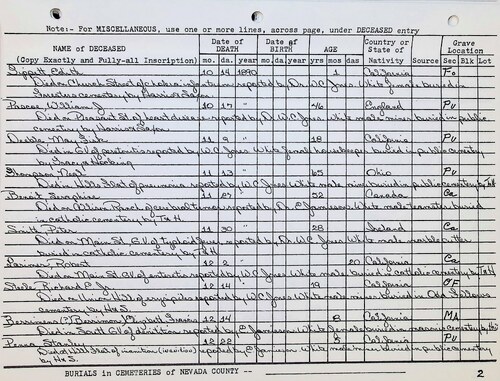 Note:- For MISCELLANEOUS, use one or more lines, across page, under DECEASED entry
NAME of DECEASED
(Copy Exactly and Fully-all Inscription)
Date of DEATH
mo. da. year
Date of BIRTH
mo. da. year
AGE
yrs mos das
Country or State of Nativity
Source
Grave Location
Sec Blk Lot
Edith 10 14 1890 1 California Fo
Died on Church Street of cholera infantum reported by Dr. W.C. Jones White female buried in
Foresters cemetery by Harris & Safon
Pascoe William J. 10 17 " 46 England Pu
Died on Pleasant St of heart disease reported by Dr. W.C. Jones White male miner buried in public
cemetery by Harris & Safon
May 11 9 " 18 California Pu
Died in GV of reported by W.C. Jones White female housekeeper buried in public cemetery
by Tracy & Hocking
Thompson Neal 11 13 " 65 Ohio Pu
Died in Hills Flat of pneumonia reported by W.C. Jones White male miner buried in public cemetery by T & H
Benoit Seraphine 11 27 " 52 Canada Ca
Died on Ranch of reported by E. Jamieson White male teamster buried
in catholic cemetery by T & H
Smitt Peter 11 30 " 28 Ireland Ca
Died on Main St. GV of typhoid fever reported by Dr. W.C. Jones White male marble cutter
buried in catholic cemetery by T & H
Larimer Robert 12 2 " 20 California Ca
Died on Main St GV of reported by W.C. Jones White male buried in catholic cemetery by T & H
Richard E Jr 12 14 " 19 California OF
Died on Union Hill of erysipelas reported by W.C. Jones White male miner buried in Odd Fellows
cemetery by H & S
12 14 " 8 California MA
Died in South GV of dentition reported by E. Jamieson White female buried in masonic cemetery by H & S
Stanley 12 22 " 8 California Pu
Died at Hills Flat of inanition reported by E. Jamieson White male miner buried in public cemetery
by H & S.
BURIALS in CEMETERIES of NEVADA COUNTY -- 2